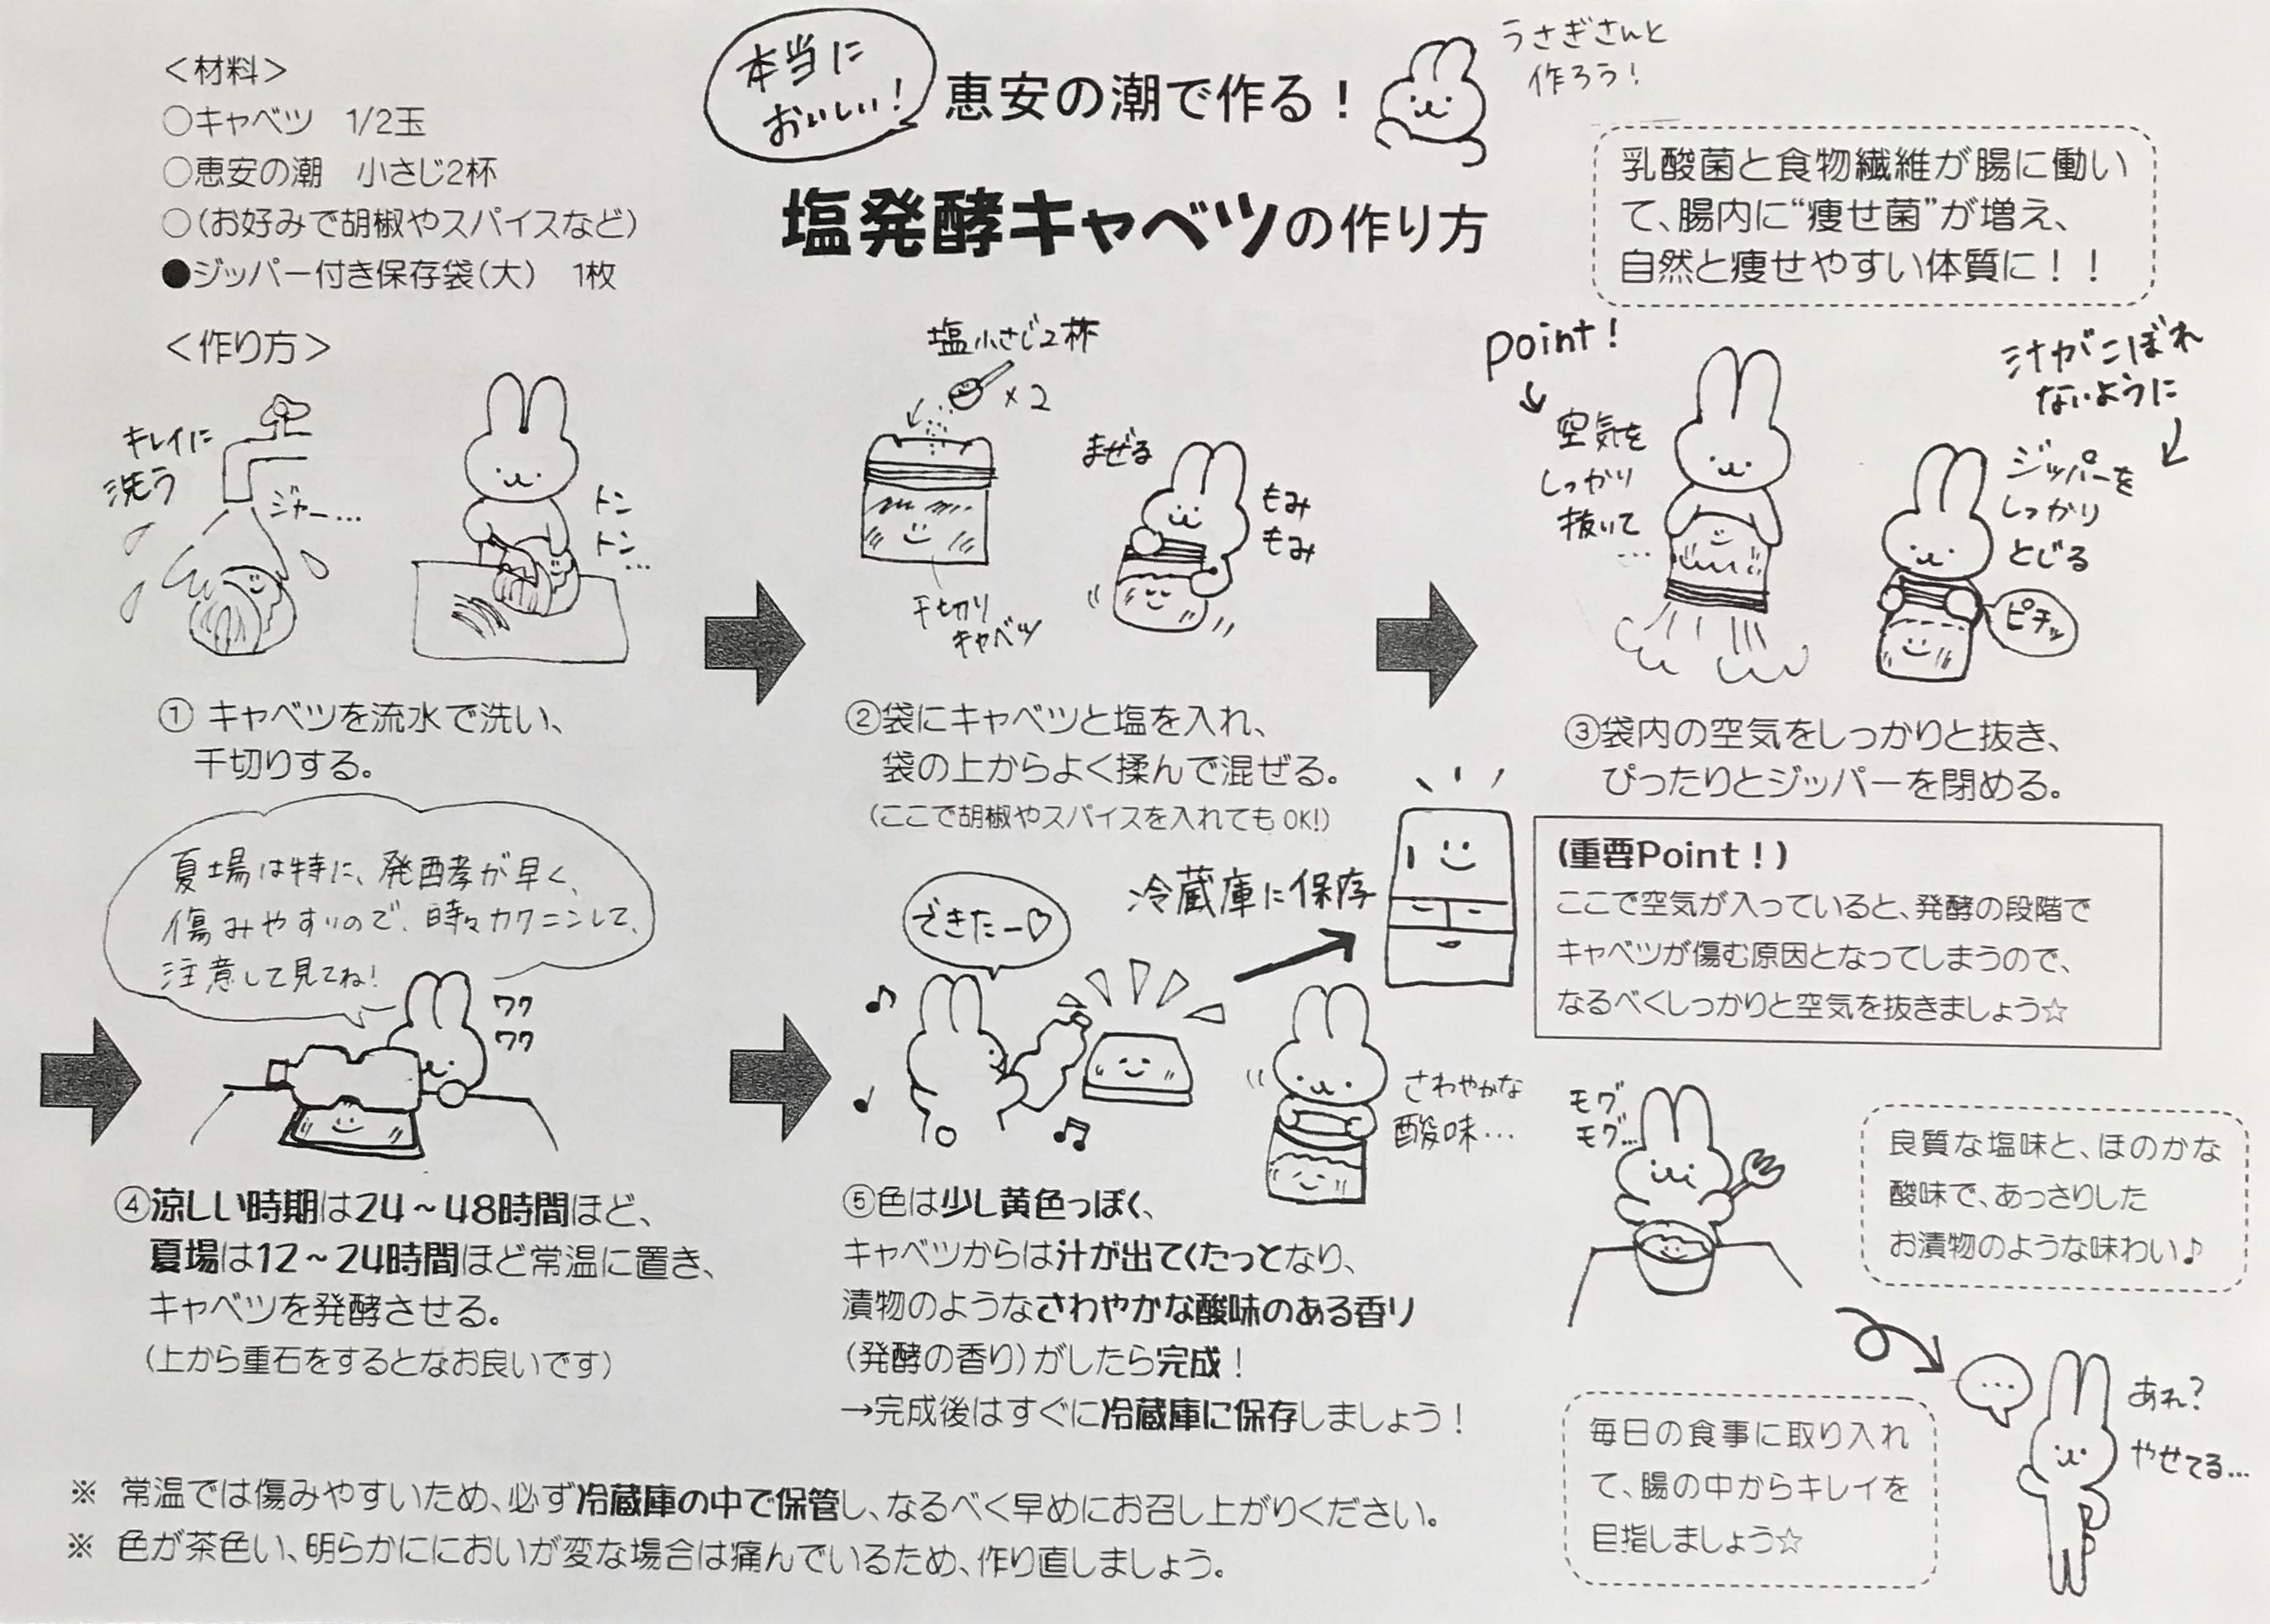 本当に
おいしい！
恵安の潮で作る！
うさぎさんと
作ろう！
塩発酵キャベツの作り方
＜材料＞
○キャベツ　1/2玉
○恵安の潮　小さじ2杯
○（お好みで胡椒やスパイスなど）
●ジッパー付き保存袋（大）　1枚
乳酸菌と食物繊維が腸に働い
て、腸内に“痩せ菌”が増え、
自然と痩せやすい体質に！！
＜作り方＞
キレイに
洗う
ジャー…
トン
トン…
① キャベツを流水で洗い、
千切りする。
塩小さじ2杯
×2
千切り
キャベツ
まぜる
もみ
もみ
②袋にキャベツと塩を入れ、
袋の上からよく揉んで混ぜる。
（ここで胡椒やスパイスを入れてもOK!）
point！
空気を
しっかり
抜いて
…
汁がこぼれ
ないように
ジッパーを
しっかり
とじる
ピチッ
③袋内の空気をしっかりと抜き、
ぴったりとジッパーを閉める。
(重要Point！)
ここで空気が入っていると、発酵の段階で
キャベツが傷む原因となってしまうので、
なるべくしっかりと空気を抜きましょう☆
夏場は特に、発酵が早く、
傷みやすいので、時々カクニンして、
注意して見てね！
ワク
ワク
④涼しい時期は24～48時間ほど、
夏場は12～24時間ほど常温に置き、
キャベツを発酵させる。
（上から重石をするとなお良いです）
できたー♡
冷蔵庫に保存
さわやかな
酸味…
⑤色は少し黄色っぽく、
キャベツからは汁が出てくたっとなり、
漬物のようなさわやかな酸味のある香り
（発酵の香り）がしたら完成！
→完成後はすぐに冷蔵庫に保存しましょう！
モグ
モグ…
良質な塩味と、ほのかな
酸味で、あっさりした
お漬物のような味わい♪
毎日の食事に取り入れ
て、腸の中からキレイを
目指しましょう☆
…
あれ？
やせてる…
※ 常温では傷みやすいため、必ず冷蔵庫の中で保管し、なるべく早めにお召し上がりください。
※ 色が茶色い、明らかににおいが変な場合は痛んでいるため、作り直しましょう。